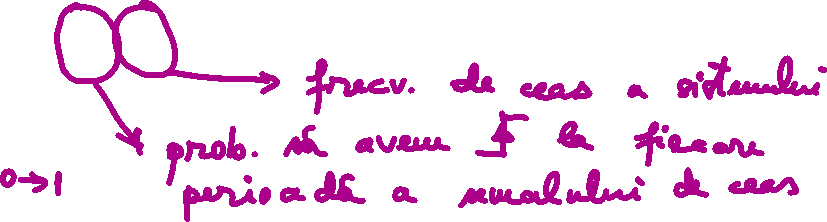 frecv. de ceas a sistemului
prob. să avem la fiecare
0→1 perioadă a semnalului de ceas